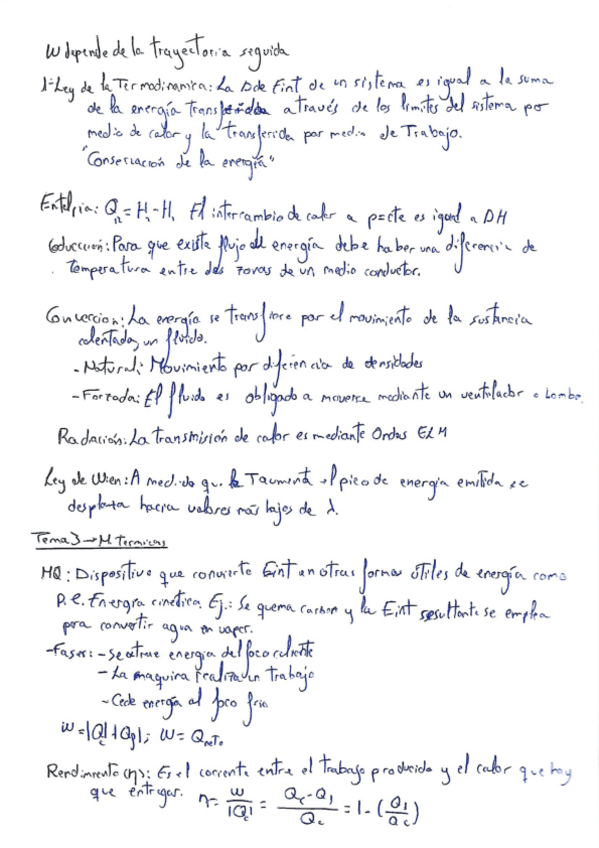 W depende de la trayectoria seguida
1ª Ley de la Termodinamica: La D de Eint de un sistema es igual a la suma
de la energía transferida a través de los limites del sistema por
medio de calor y la transferida por medio de Trabajo.
"Conservación de la energía"
Entalpia: Q12 = H2 - H1 El intercambio de calor a p=cte es igual a DH
Coducción: Para que exista flujo de energía debe haber una diferencia de
Temperatura entre dos zonas de un medio conductor.
Conveccion: La energía se transfiere por el movimiento de la sustancia
calentada, un fluido.
- Natural: Movimiento por diferiencia de densidades
- Forzada: El fluido es obligado a moverse mediante un ventilador o bomba.
Radación: La transmisión de calor es mediante Ondas ELM
Ley de Wien: A medida que la T aumenta el pico de energía emitida se
desplaza hacia valores más bajos de λ.
Tema 3 → M. Termicas
MQ: Dispositivo que convierte Eint en otras formas útiles de energía como
p.e. Energía cinética. Ej.: Se quema carbon y la Eint resultante se emplea
para convertir agua en vapor.
- Fases: - Se extrae energia del foco caliente
- La maquina realiza un trabajo
- Cede energía al foco frio
W = |Qc| + |Qf|; W = Qneto
Rendimiento (η): Es el cociente entre el trabajo producido y el calor que hay
que entregar. η = W/|Qc| = Qc - Qf/Qc = 1 - (Qf/Qc)